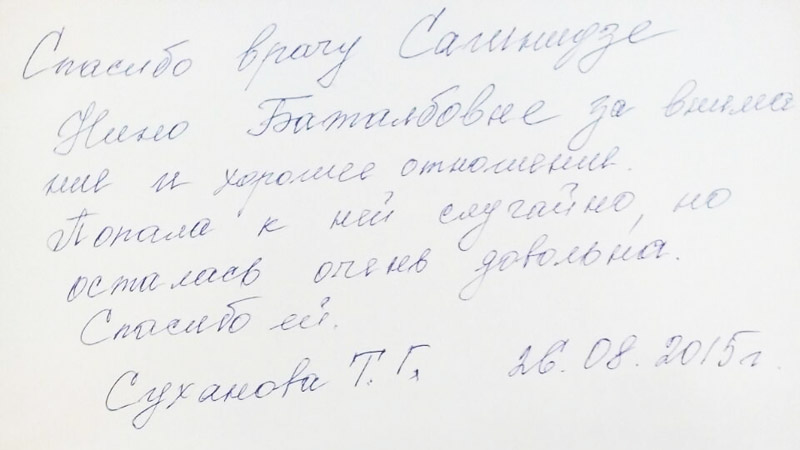 Спасибо врачу Сагинидзе
Нино Баталбовне за внима
ние и хорошее отношение.
Попала к ней случайно, но
осталась очень довольна.
Спасибо ей.
Суханова Т. Г. 26.08.2015г.